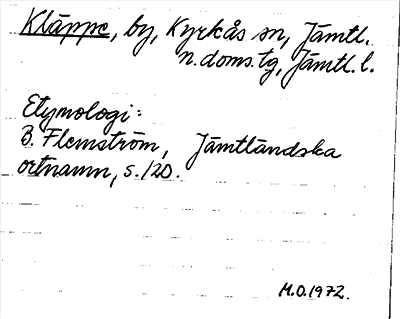 Kläppe, by, Kyrkås sn, Jämtl.
n. doms.tg, Jämtl. l.
Etymologi:
B. Flemström, Jämtländska
ortnamn, s. 120.
M.O. 1972.